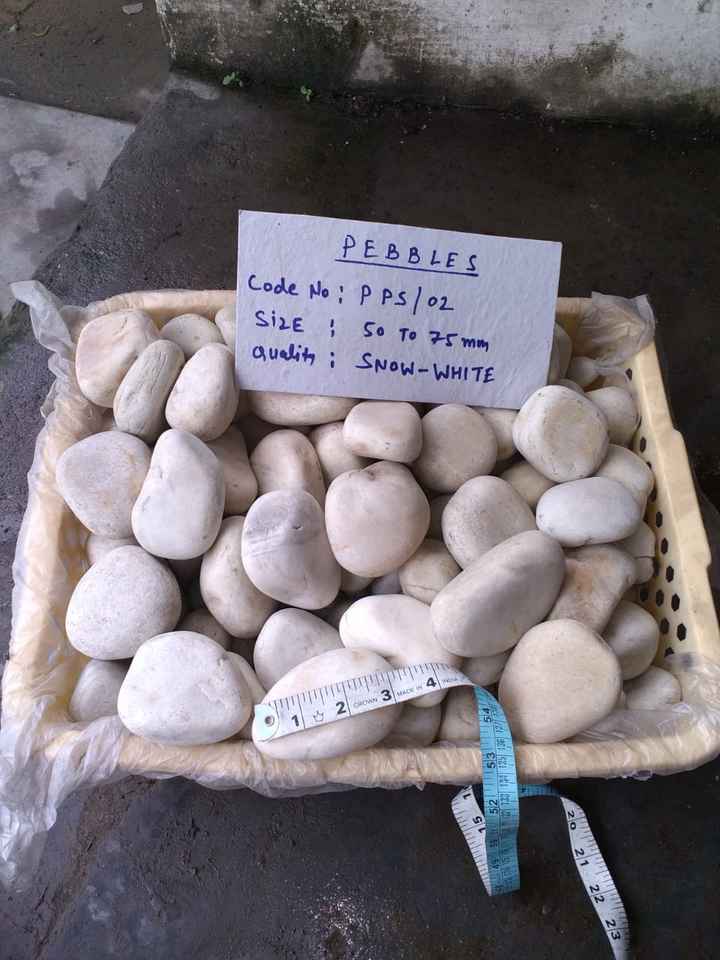 PEBBLES
Code No : PPS/02
SIZE : 50 TO 75 mm
Quality : SNOW-WHITE
1 2 CROWN 3 MADE IN 4 INDIA
54
53
52
20
21
22
23